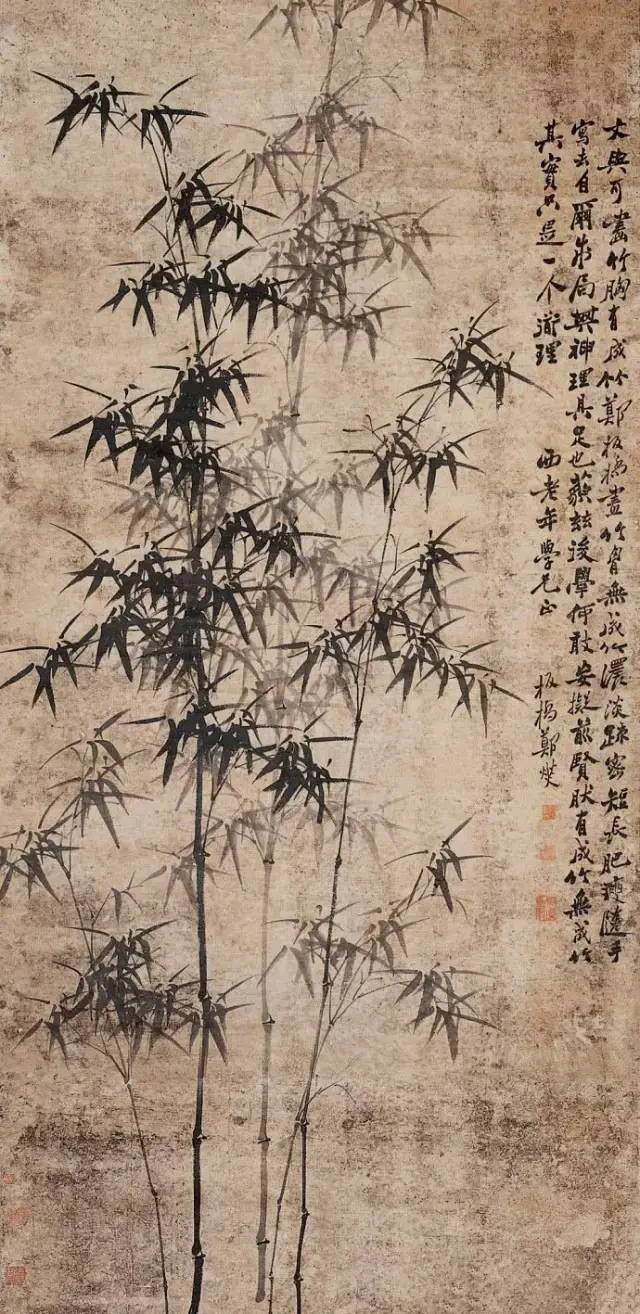 文與可畫竹胸有成竹鄭板橋畫竹胷無成竹濃淡疎密短長肥瘦隨手
寫去自爾成局其神理具足也藐茲後學何敢妄擬前賢然有成竹無成竹
其實只是一个道理 西老年學兄正 板橋鄭燮